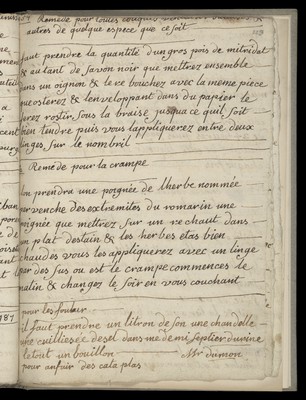 Remede pour toutes coliques venteuses
autres de quelque espece que ce soit
faut prendre la quantité d'un gros pois de mitridat
& autant de savon noir que mettrez ensemble
dans un oignon & le reboucherz avec la mesme piece
que osterez & l'enveloppant dans du papier le
ferez rostir sous la braise jusqua ce quil soit
bien tendre puis vous lappliquerez entre deux
linges sur le nombril
Remede pour la crampe
prendre une poignée de lherbe nommée
pervenche des extremites du romarin une
poignée que mettrez sur un rechaut dans
un plat destain & les herbes etas bien
chaudes vous les appliquerez avec un linge
par des sus ou est le crampe commences le
matin & changez le soir en vous couchant
pour les fouleur
il faut prendre un litron de son une chandelle
une cuilliesee de sel dans une demi septier du vine
le tout un bouillon Mr dumon
pour anfuir des cata plas